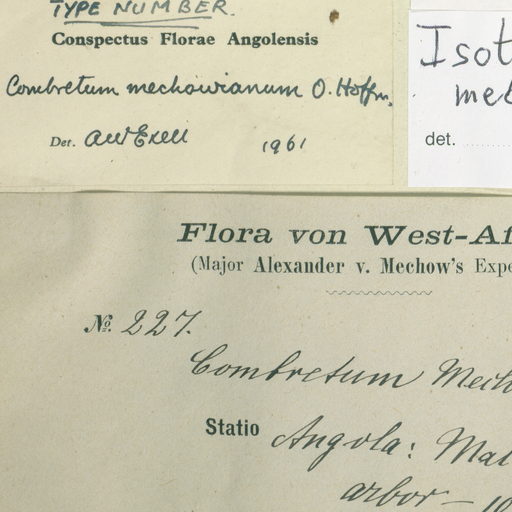 TYPE NUMBER.
Conspectus Florae Angolensis
Combretum mechowianum O. Hoffm.
Det. AWExell 1961
Isot
mec
det.
Flora von West-Af
(Major Alexander v. Mechow's Expe
№. 227.
Combretum Mech
Statio Angola: Mal
arbor — 10